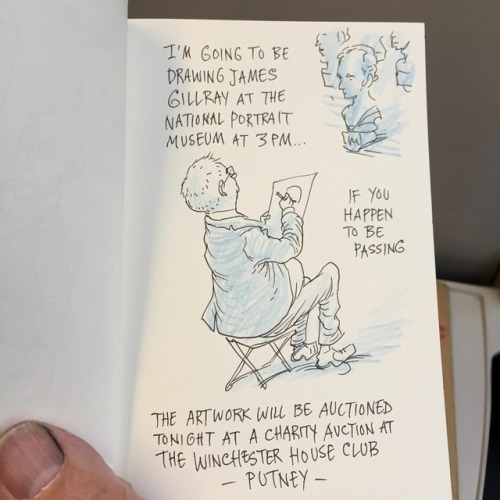 I'M GOING TO BE
DRAWING JAMES
GILLRAY AT THE
NATIONAL PORTRAIT
MUSEUM AT 3PM...
IF YOU
HAPPEN
TO BE
PASSING
THE ARTWORK WILL BE AUCTIONED
TONIGHT AT A CHARITY AUCTION AT
THE WINCHESTER HOUSE CLUB
- PUTNEY -